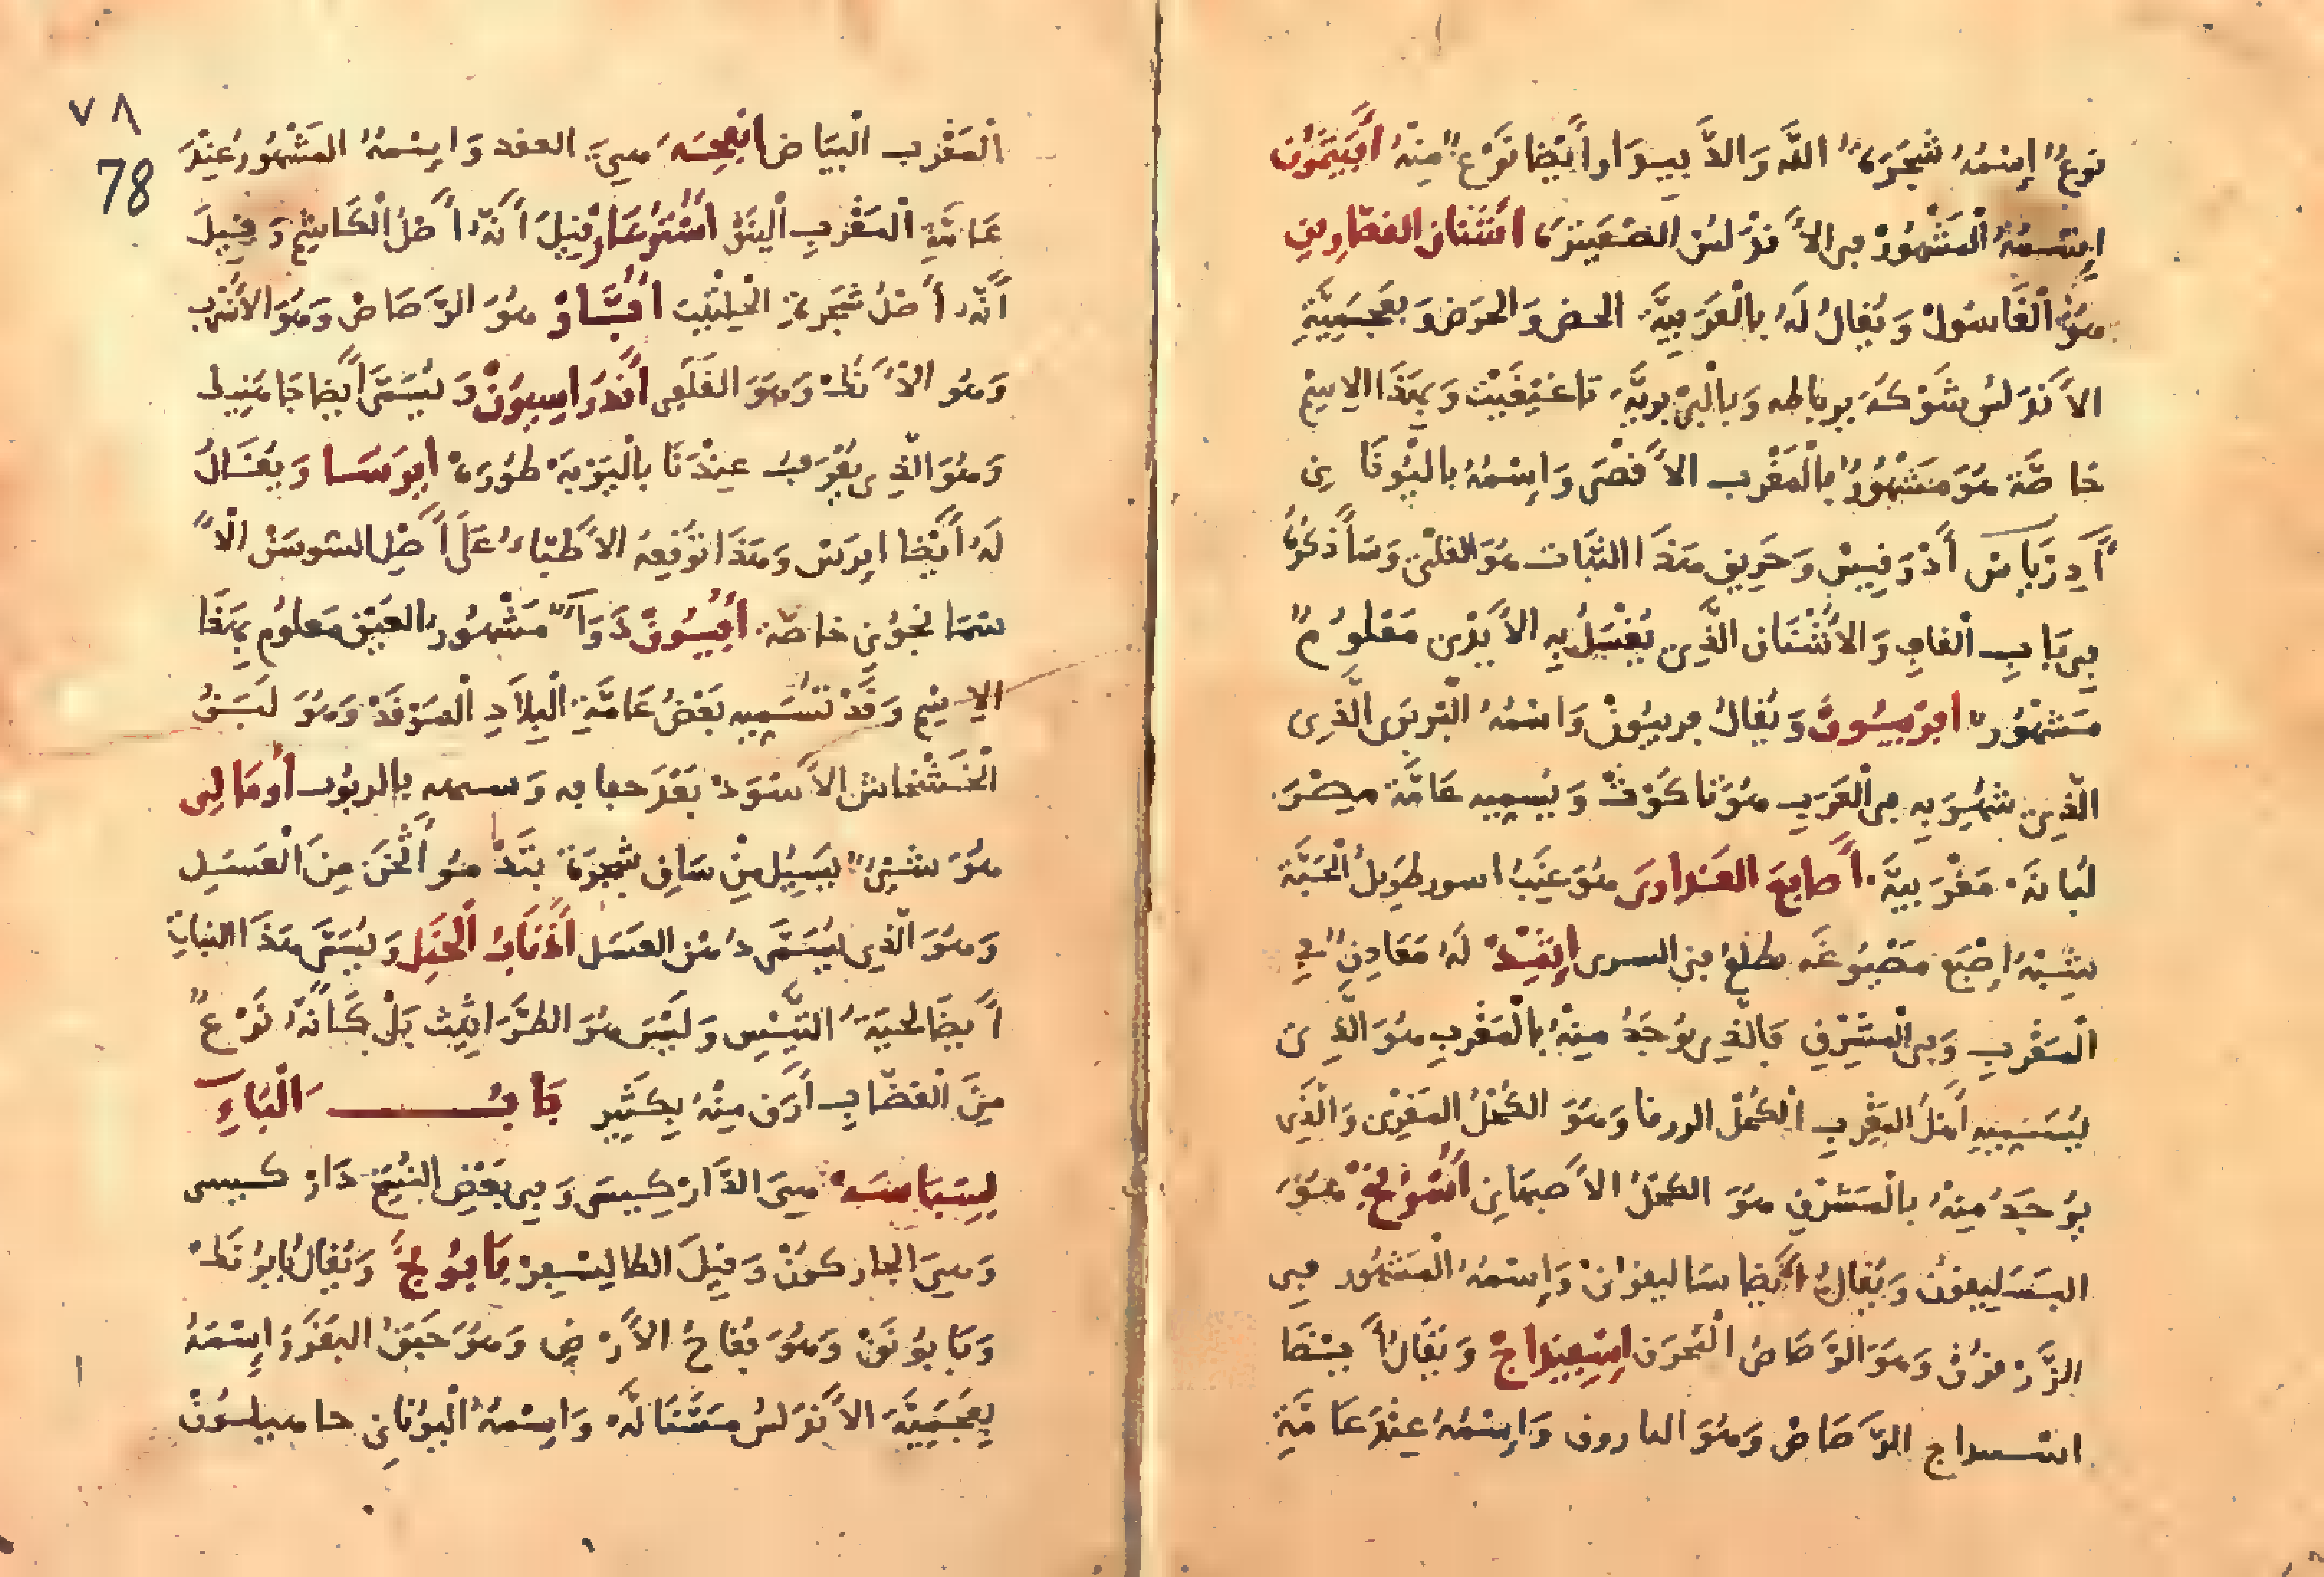 نَوعٌ إسْمُهُ شَجَرَةٌ اللَّه وَالدَّبيدوَار وأَيْضا نَوْعٌ مِنْهُ أَبِيثِمُون
إِسْمُهُ الْمَشْهُورُ في الأَنْدَلس الصُّعَيْتَرَة اشْنَان القصّارين
هُوَ الْغَاسُولْ وَيُقالُ لَهُ بِالْعَرَبِيَّة الحمض وَالحرَض وَبعَجَمِيَّةِ
الأَنْدَلُس شَوْكَهَ برناطه وَبالْبَرْبَرِيَّة تاغيغيت وَبِهَذَا الإِسْم
خَاصَّة هُوَ مَشْهُورٌ بِالْمَغْرب الأَقصَى وَإِسْمُهُ باليُونَانِي
أَدِرْيَاس أَدْرَفِيس وَحَرِيق هَذَا النَّبَات هُوَ القلى وَسَأَذكُرُهُ
في بَاب القاف وَالاشْنَان الَّذي يُغْسَلُ بِهِ الأَيْدِي مَعْلُومٌ
مَشْهُورٌ افربيون وَيُقالُ فربيون وَاسْمُهُ البَرْبَري الَّذي
الَّذي شُهِرَ بِهِ في الْغَرب هُوَ تاكَوْت وَيُسَمِيه عَامَّة مِصْرَ
لُبَانَة مَغْرَبِيَّة أَصَابِع العَذَارَى هُوَ عِنَبٌ اسود طَوِيلُ الْحَبَّة
شِبْهُ اصْبَع مَصْبُوغَه إثْمِدْ لَهُ مَعَادِن فِي
الْمَغْرِبِ وَفي الْمَشْرِق فَالَّذي يُوجَدُ مِنْهُ بِالْمَغْرِب هُوَ الَّذِي
يُسَمِيهِ أَهْلُ الْمَغْرِبِ الْكُحْل وَهُوَ الكُحْلُ المَغْرِبِي وَالَّذِي
يُوجَدُ مِنْهُ بِالْمَشْرِق هُوَ الكحْلُ الأَصبهَانِي أُسْرُنْجْ هُوَ
السَّلِيقُون وَيُقَالُ أَيْضا سَالِيقوان وَإِسْمُهُ الْمَشْهُور في
الزَّرْقُون وَهُوَ الرَّصَاصُ الْمُحْرَق اسْفِيذَاجْ وَيُقَالُ أَيْضَا
الرَّصَاصْ وَهُوَ الباروق وَاسْمُهُ عِنْدَ عَامَّةِ
٧٨
78
الْمَغْرب الْبَيَاض انْفِحَه هِيَ العقد وَاسْمُهُ المَشْهُور عِنْدَ
عَامَّةِ الْمَغْرِب اليَنَق أُشْتُرغَار قِيلَ أَنَّهُ أَصْلُ الْكَاشِم وَقِيلَ
أَنَّهُ أَصْلُ شَجَرَةِ الْحِلْتِيت أَبَّارْ هُوَ الرَّصَاص وَهُوَ الأُسْرُب
وَهُو الآنُكْ وَهُوَ القَلَعِى أَنْدَرَاسِيون وَيُسَمَّى أَيْضا
وَهُوَ الَّذي يُعْرَفُ عِنْدَنَا بِالْبَرْبَرِيَة طورَة ايرَسَا وَيُقَالُ
لَهُ أَيْضا ايرَس وَهَذَا تُوقِعُهُ الأَطِبَّاءُ عَلَى أَصْلِ السَّوسَنْ الأَ
سْمَانْجُوني خاصَّة أَفْيُون دَوَاءٌ مَشْهُورُ العَيْن مَعْلُوم بِهَذَا
الإِسْم وَقَدْ تُسَمِيه بَعْضُ عَامَّةِ الْبِلَادِ المرقد وَهُوَ لَبَنُ
الْخَشْخَاش الأَسْوَدْ بَعْدَ جفافه أُومَالِي
هُوَ شَيْءٌ يَسِيلُ مِنْ سَاقِ شَجَرَة هُو أَثْخَن مِنَ الْعَسَلِ
وَهُوَ الَّذي يُسَمَّى دُهْنَ العَسَل أَذْنَابُ الْخَيْل وَيُسَمَّى هَذَا النباتِ
أَيضا لِحْيَةُ التَّيْسِ وَلَيْسَ هُوَ الطَّرَاثِيث بَلْ كَانَّهُ نَوْعٌ
مِنَ الْقصَّابِ أَرَق مِنْهُ بِكَثِير بَابُ الْبَاءِ
بِسْبَاسَه هِيَ الدَّاركِيسَى وَفي بَعْض النُّسَخ دَار كسى
وَهِيَ الجاركون وَقِيلَ الطاليسفر بَابُونَجْ وَيُقَالُ بَابُونَكْ
وَبَابُونَق وَهُوَ تُفَاحُ الأَرْضِ وَهُوَ حَبَقُ البَقَر وَاسْمُهُ
بِعَجَمِيَّة الأَنْدَلُس مَسَّنَالَّه وَاسْمُهُ الْيونَانِي حاميلون